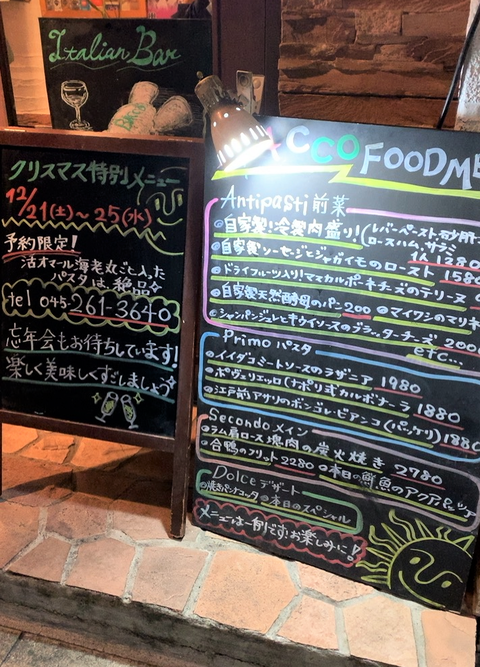 Italian Bar
クリスマス特別メニュー
12/21(土)～25(水)
予約限定!
活オマール海老丸ごと入た
パスタは、絶品
tel 045-261-3640
忘年会もお待ちしています!
楽しく美味しくすごしましょう
CCO FOOD ME
Antipasti 前菜
自家製!冷菜肉盛り!(レバーペースト砂肝
ロースハム、サラミ 1380
自家製ソーセージとジャガイモのロースト 1580
ドライフルーツ入り!マスカルポーネチーズのテリーヌ
自家製天然酵母のパン200 マイワシのマリネ
シャンパンジュレとキウイソースのブラッターチーズ 2000
etc...
Primo パスタ
イイダコミートソースのラザニア 1980
ポヴェリエッロ(ナポリ式カルボナーラ 1880
江戸前アサリのボンゴレ・ビアンコ(パッケリ)1880
Secondo メイン
ラム肩ロース塊肉の炭火焼き 2780
合鴨のフリット 2280 本日の鮮魚のアクア&
Dolce デザート
焼きパンナコッタ 本日のスペシャル
メニューは一例です:お楽しみに!